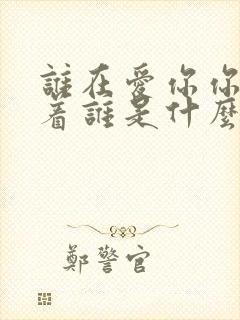 誰在愛你你
着誰是什麼
鄭警官